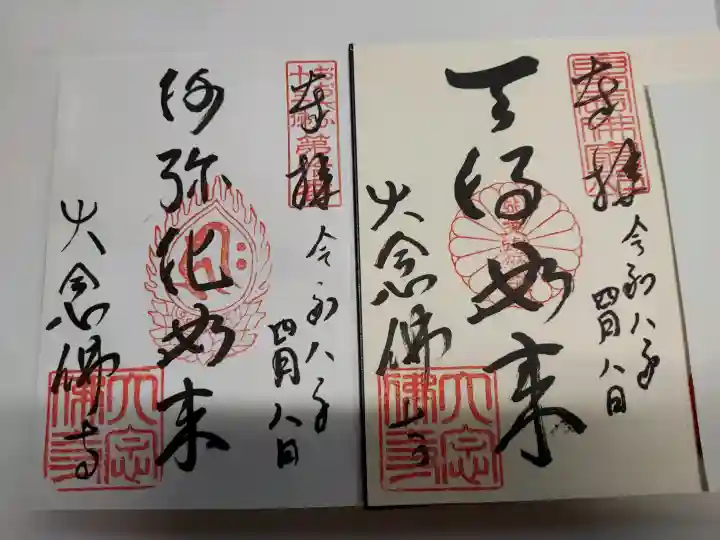 奉拝
令和八年
四月八日
天得如来
大念佛寺
大念佛寺
奉拝
令和八年
四月八日
阿弥陀如来
大念佛寺
大念佛寺